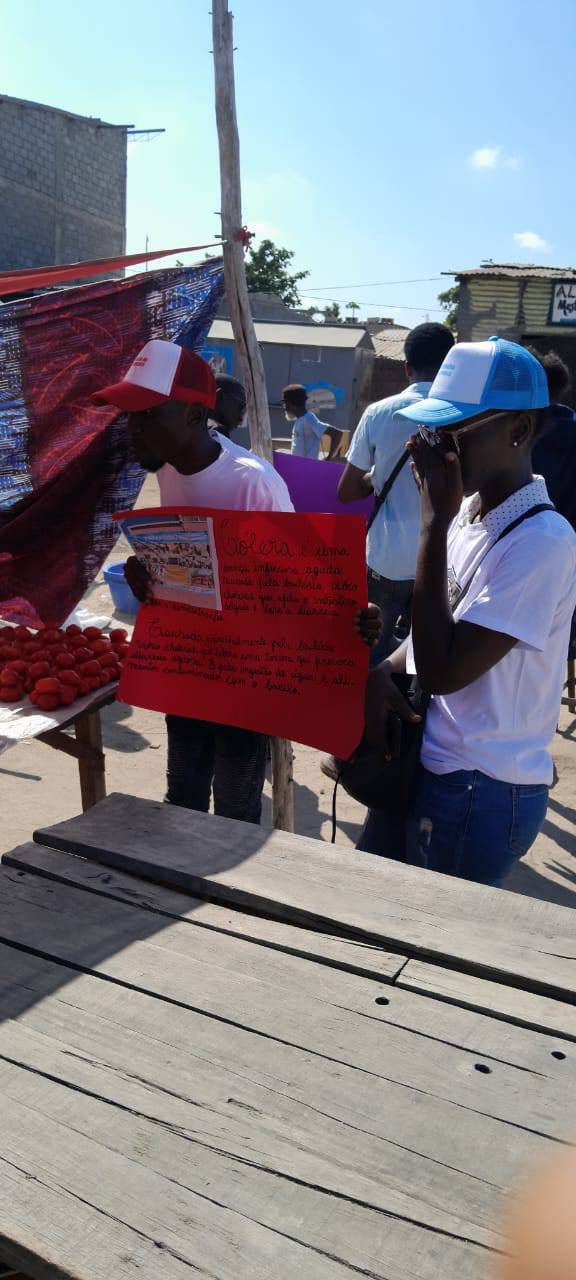 Cólera é uma
doença infecciosa aguda
causada pela bactéria vibrio
cholerae que afeta o intestino
delgado e leva a diarreia
Causada, principalmente pela bactéria
vibrio cholerae, que libera uma toxina que provoca
diarreia aquosa. É pela ingestão de água e ali-
mentos contaminados com o bacilo.
AL